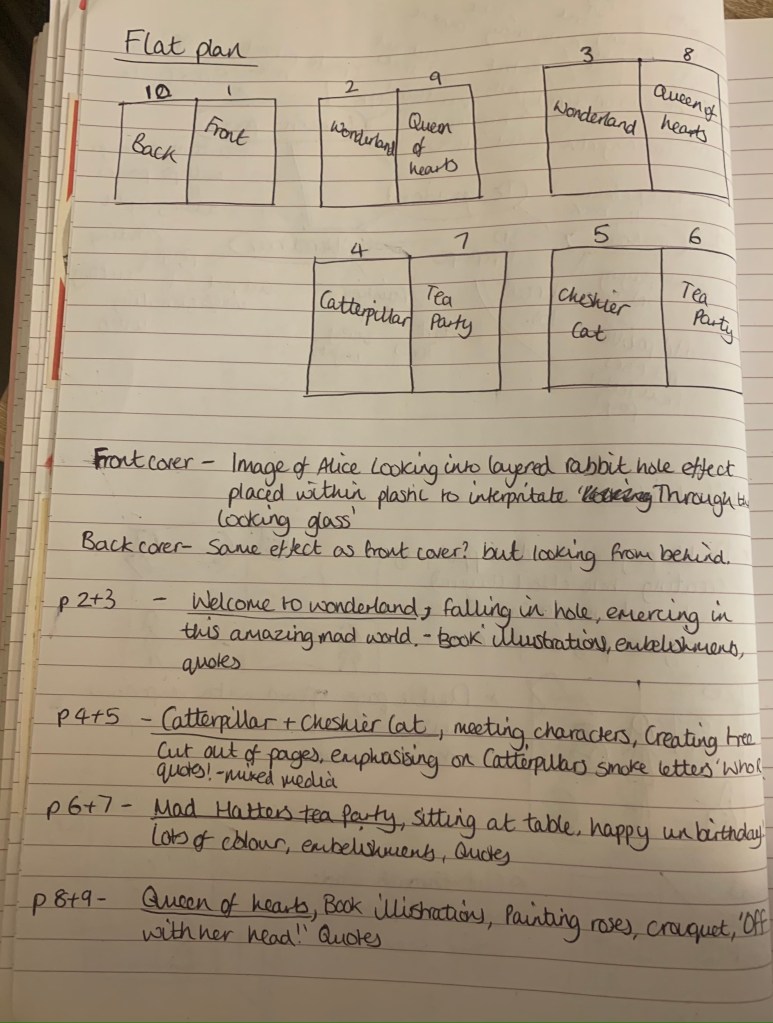 Flat plan
10 1
Back Front
2 9
Wonderland Queen of hearts
3 8
Wonderland Queen of hearts
4 7
Catterpillar Tea Party
5 6
Cheshier Cat Tea Party
Front cover - Image of Alice Looking into layered rabbit hole effect
placed within plastic to interpritate ' Through
looking glass'
Back cover - Same effect as front cover? but looking from behind.
p 2+3 - Welcome to wonderland, falling in hole, emercing in
this amazing mad world. - Book illustrations, embelishments,
quotes
p 4+5 - Catterpillar + Cheshier Cat, meeting characters, Creating tree
Cut out of pages, emphasising on Catterpillars smoke letters
quotes! - mixed media
p 6+7 - Mad Hatters tea party, sitting at table, happy unbirthday
Lots of colour, embelishments, Quotes
p 8+9 - Queen of hearts, Book illistrations, Painting roses, crouquet, 'Off
with her head!' Quotes